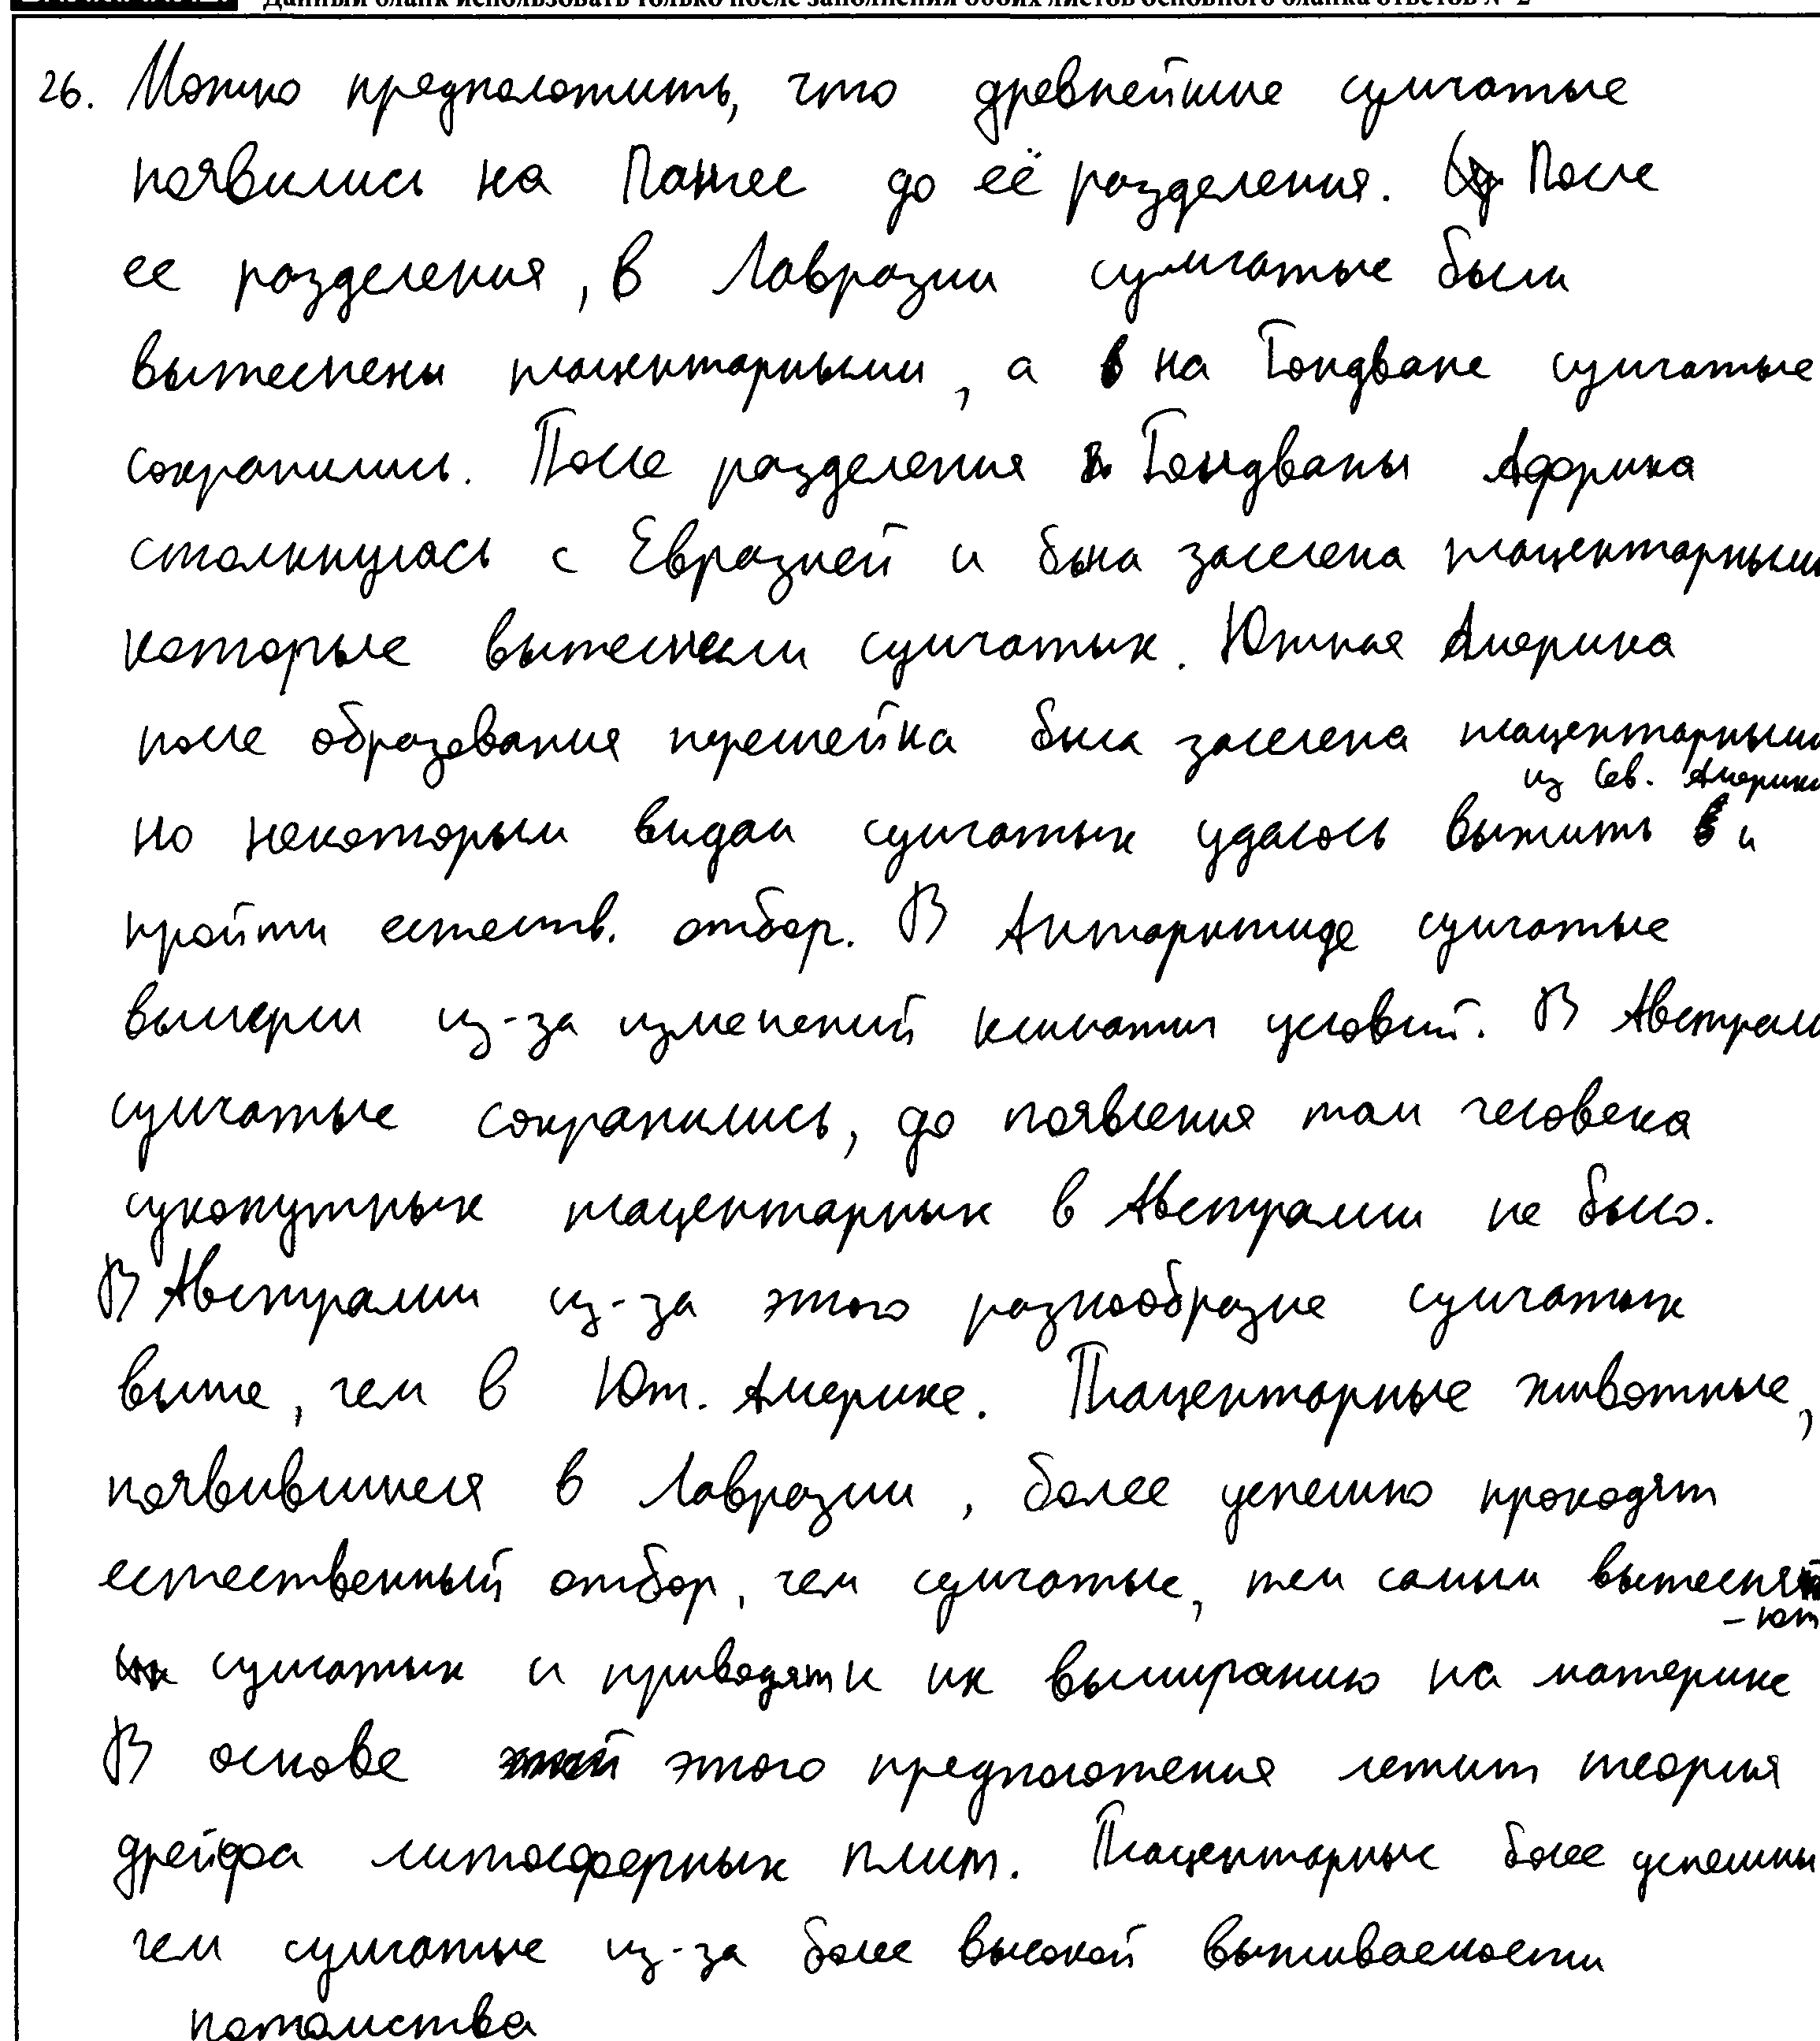 Данный бланк использовать только после заполнения обоих листов основного бланка ответов № 2
26. Можно предположить, что древнейшие сумчатые
появились на Пангее до её разделения. После
ее разделения, в Лавразии сумчатые были
вытеснены плацентарными, а на Гондване сумчатые
сохранились. После разделения Гондваны Африка
столкнулась с Евразией и была заселена плацентарными
которые вытеснили сумчатых. Южная Америка
после образования перешейка была заселена плацентарными
из Сев. Америки
но некоторым видам сумчатых удалось выжить и
пройти естеств. отбор. В Антарктиде сумчатые
вымерли из-за изменений климатич условий. В Австрали
сумчатые сохранились, до появления там человека
сухопутных плацентарных в Австралии не было.
В Австралии из-за этого разнообразие сумчатых
выше, чем в Юж. Америке. Плацентарные животные,
появившиеся в Лавразии, более успешно проходят
естественный отбор, чем сумчатые, тем самым вытесня
-ют
сумчатых и приводят к их вымиранию на материке
В основе этого предположения лежит теория
дрейфа литосферных плит. Плацентарные более успешны
чем сумчатые из-за более высокой выживаемости
потомства